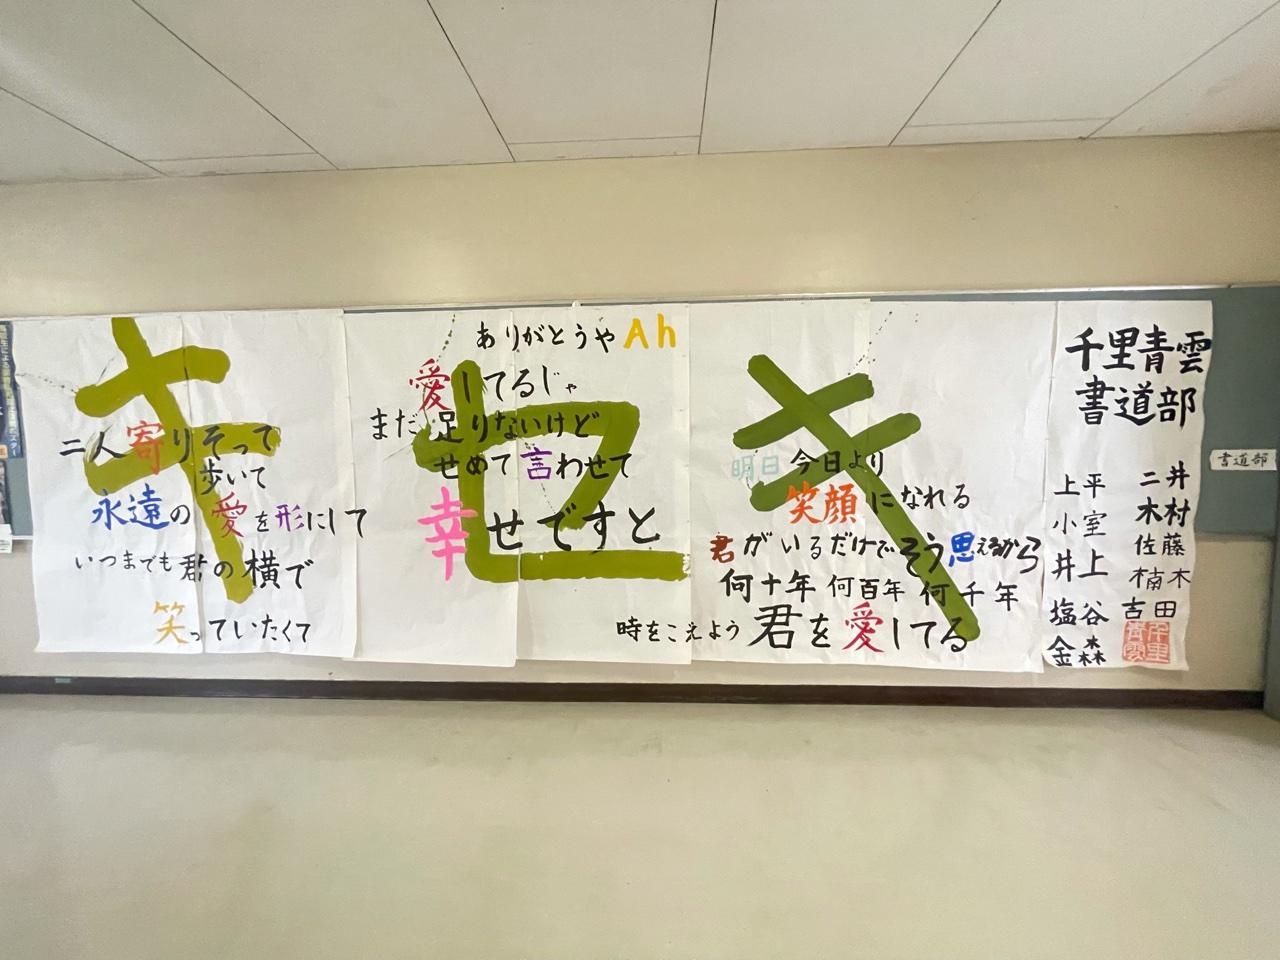 キセキ
二人寄りそって
歩いて
永遠の愛を形にして
いつまでも君の横で
笑っていたくて
ありがとうやAh
愛してるじゃ
まだ足りないけど
せめて言わせて
幸せですと
明日今日より
笑顔になれる
君がいるだけでそう思えるから
何十年何百年何千年
時をこえよう君を愛してる
千里青雲
書道部
上平 二井
小室 木村
井上 佐藤
塩谷 楠木
金森 吉田
千里青雲
書道部